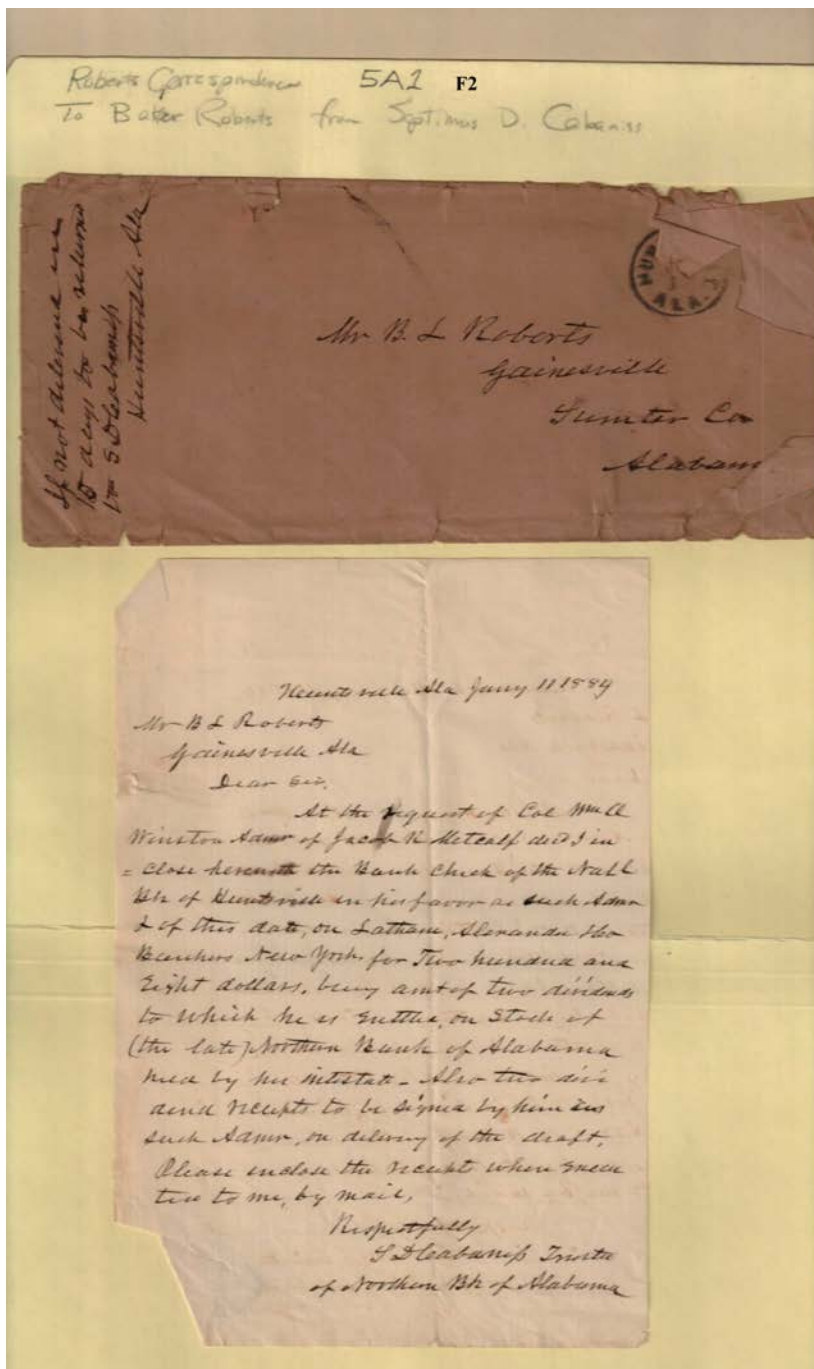 Roberts Correspondence 5A1 F2
To Baker Roberts from Septimus D. Cabaniss
If not delivered in
15 days to be returned
to S D Cabaniss
Huntsville Ala
HUN
ALA.
Mr B. L Roberts
Gainesville
Sumter Co
Alabam
Huntsville Ala Jany 11 1889
Mr B L Roberts
Gainesville Ala
Dear Sir,
At the request of Col
Winston Admr of Jacob R Metcalf decd I in
= close herewith the Bank Check of the Natl
Bk of Huntsville in his favor as such Admr
& of this date, on Latham, Alexander &Co
Bankers New York, for Two hundred and
Eight dollars, being amt of two dividends
to which he is entitled, on Stock of
(the late) Northern Bank of Alabama
held by his intestate - Also two divi
dend receipts to be signed by him as
such Admr, on delivery of the draft.
Please enclose the receipt when execu
ted to me, by mail,
Respectfully
S D Cabaniss Trustee
of Northern Bk of Alabama